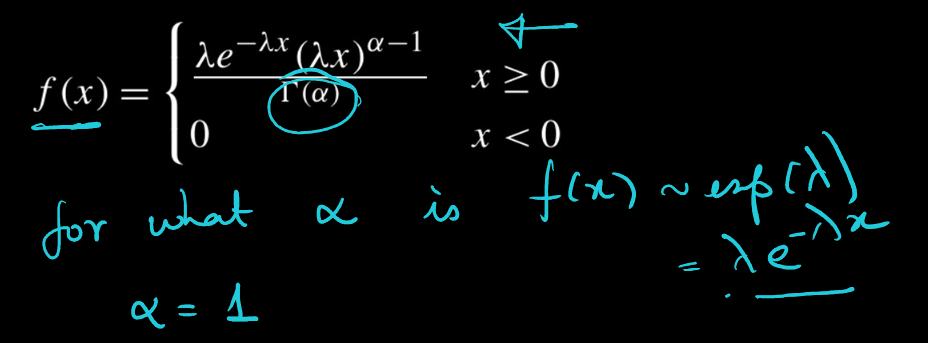 f(x) = { λe^{−λx}(λx)^{α−1} / Γ(α)   x ≥ 0
0   x < 0
for what α is f(x) ~ exp(λ)
= λe^{−λx}
α = 1